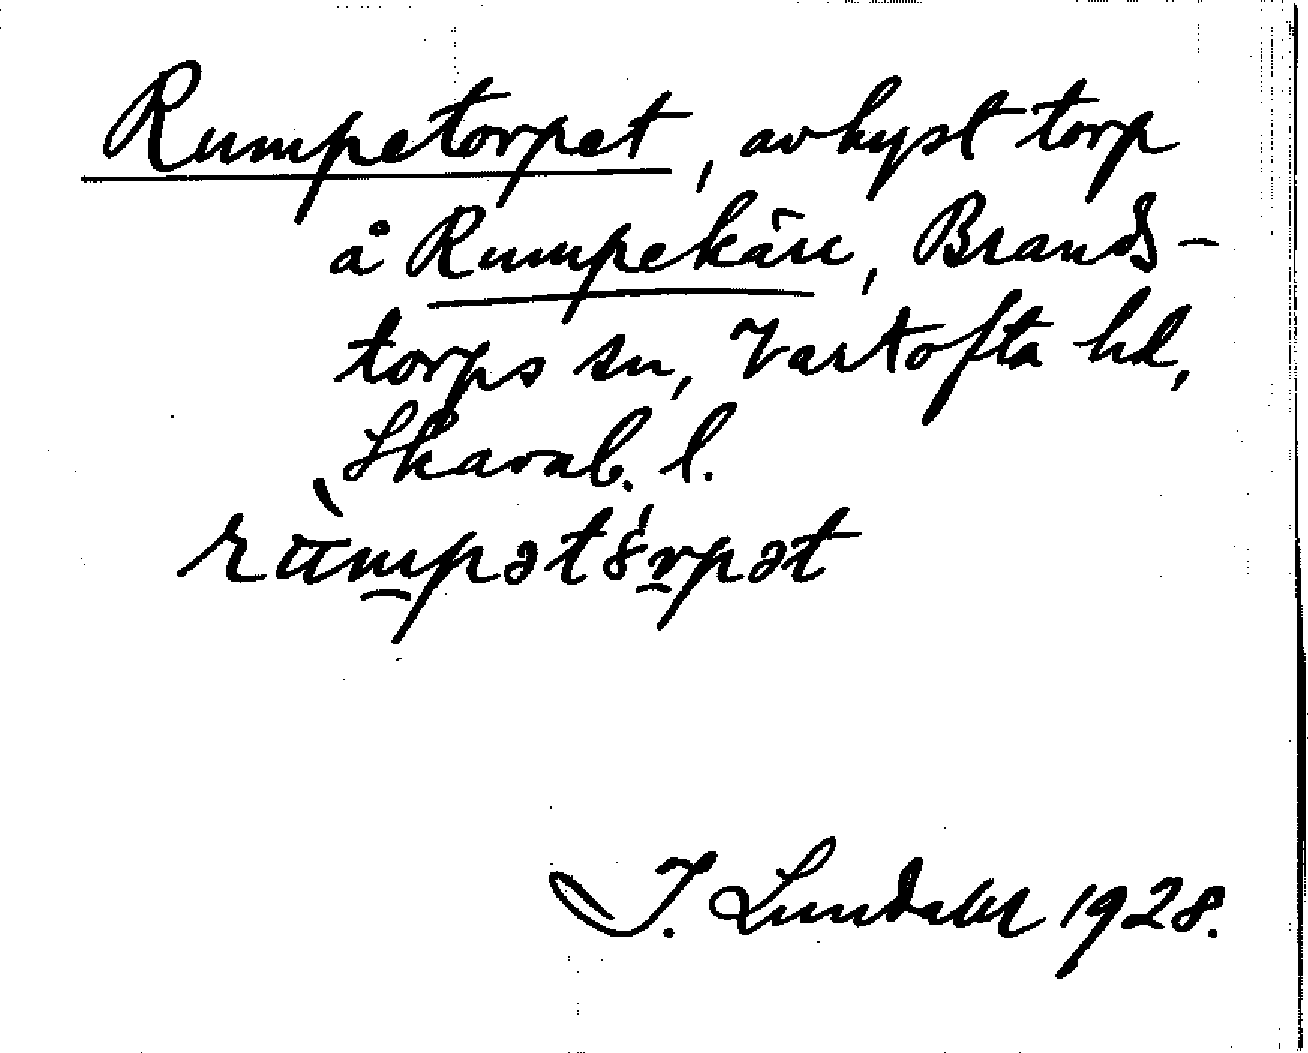 Rumpetorpet, avhyst torp
å Rumpekärr, Brands-
torps sn, Vartofta hd,
Skarab. l.
rùmpət
I. Lundahl 1928.